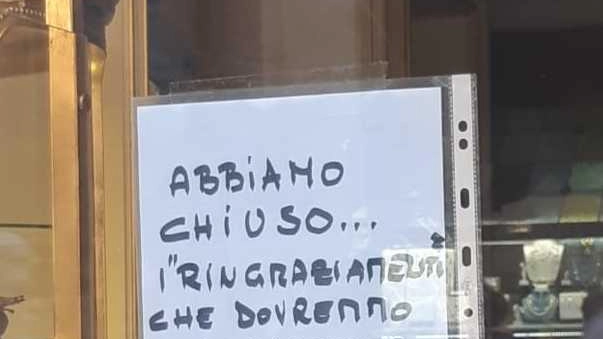 ABBiAMO
CHiUSO...
I "RINGRAZIAMENTI"
CHE DOVREMMO